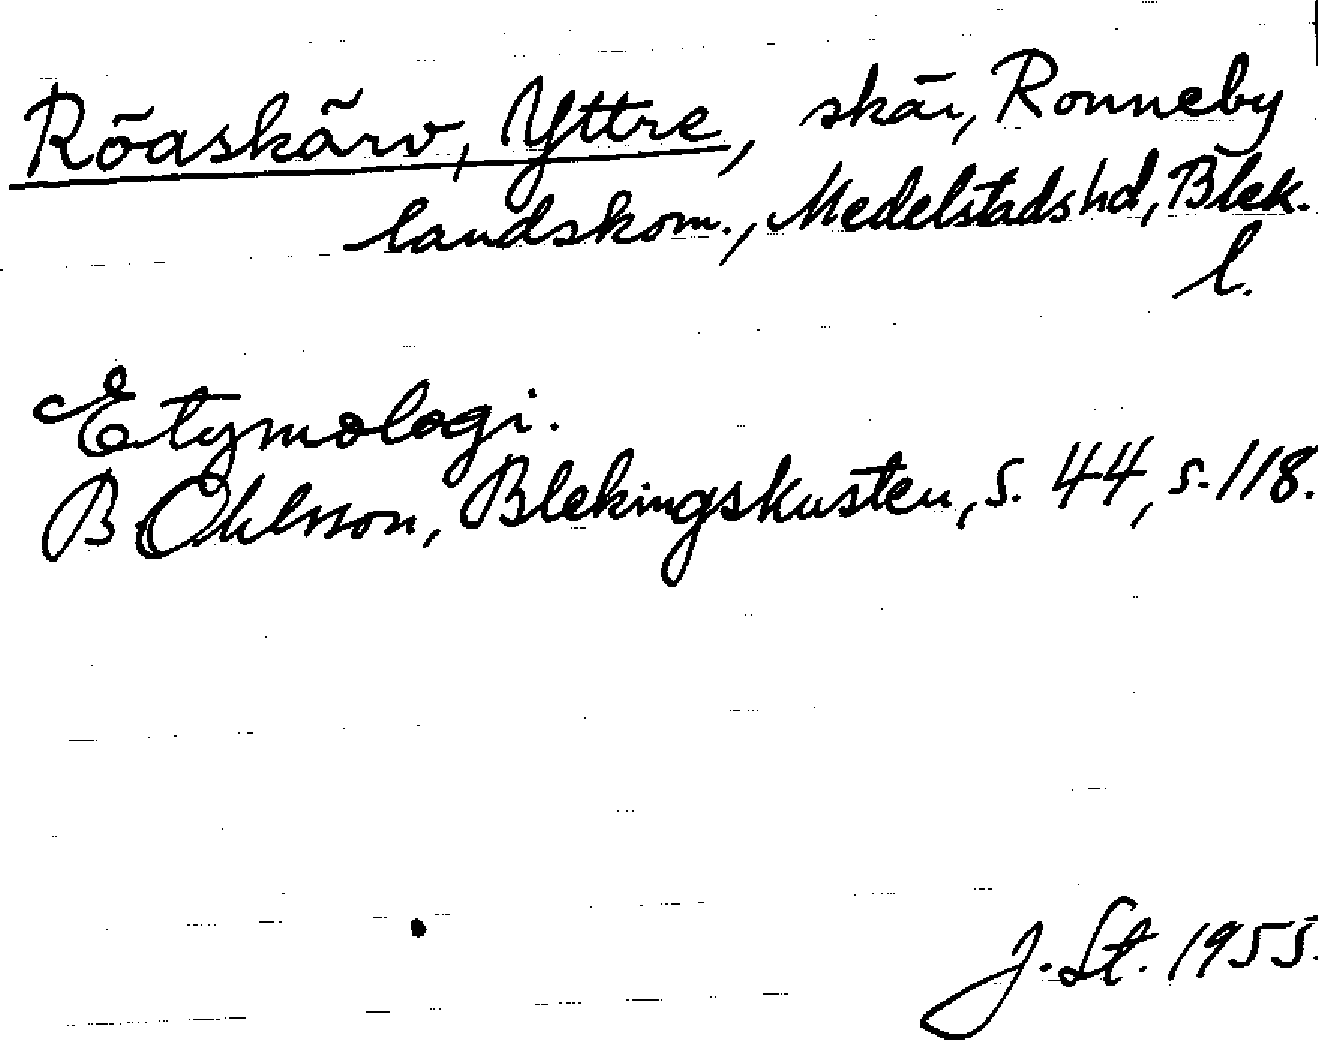 Röaskärv, Yttre, skär, Ronneby
landskom., Medelstads hd, Blek.
l.
Etymologi.
B Ohlsson, Blekingskusten, s. 44, s. 118.
J. St. 1955